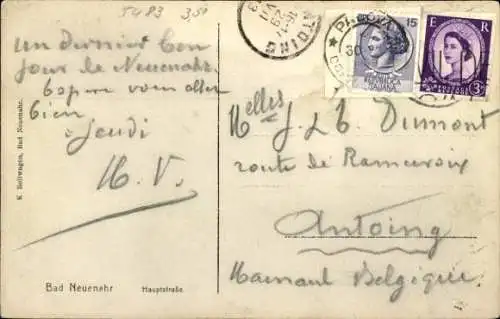 5483 3,50
un dernier bon
jour de Neuenahr.
J'espère vous allez
bien
Jeudi
H. V.
K. Bollwagen, Bad Neuenahr.
Bad Neuenahr Hauptstraße
ANTOING
PADOVA
30
15
REPUBBLICA ITALIANA
E R
3
Melles J. & B. Dumont
route de Ramecroix
Antoing
Hainaut Belgique